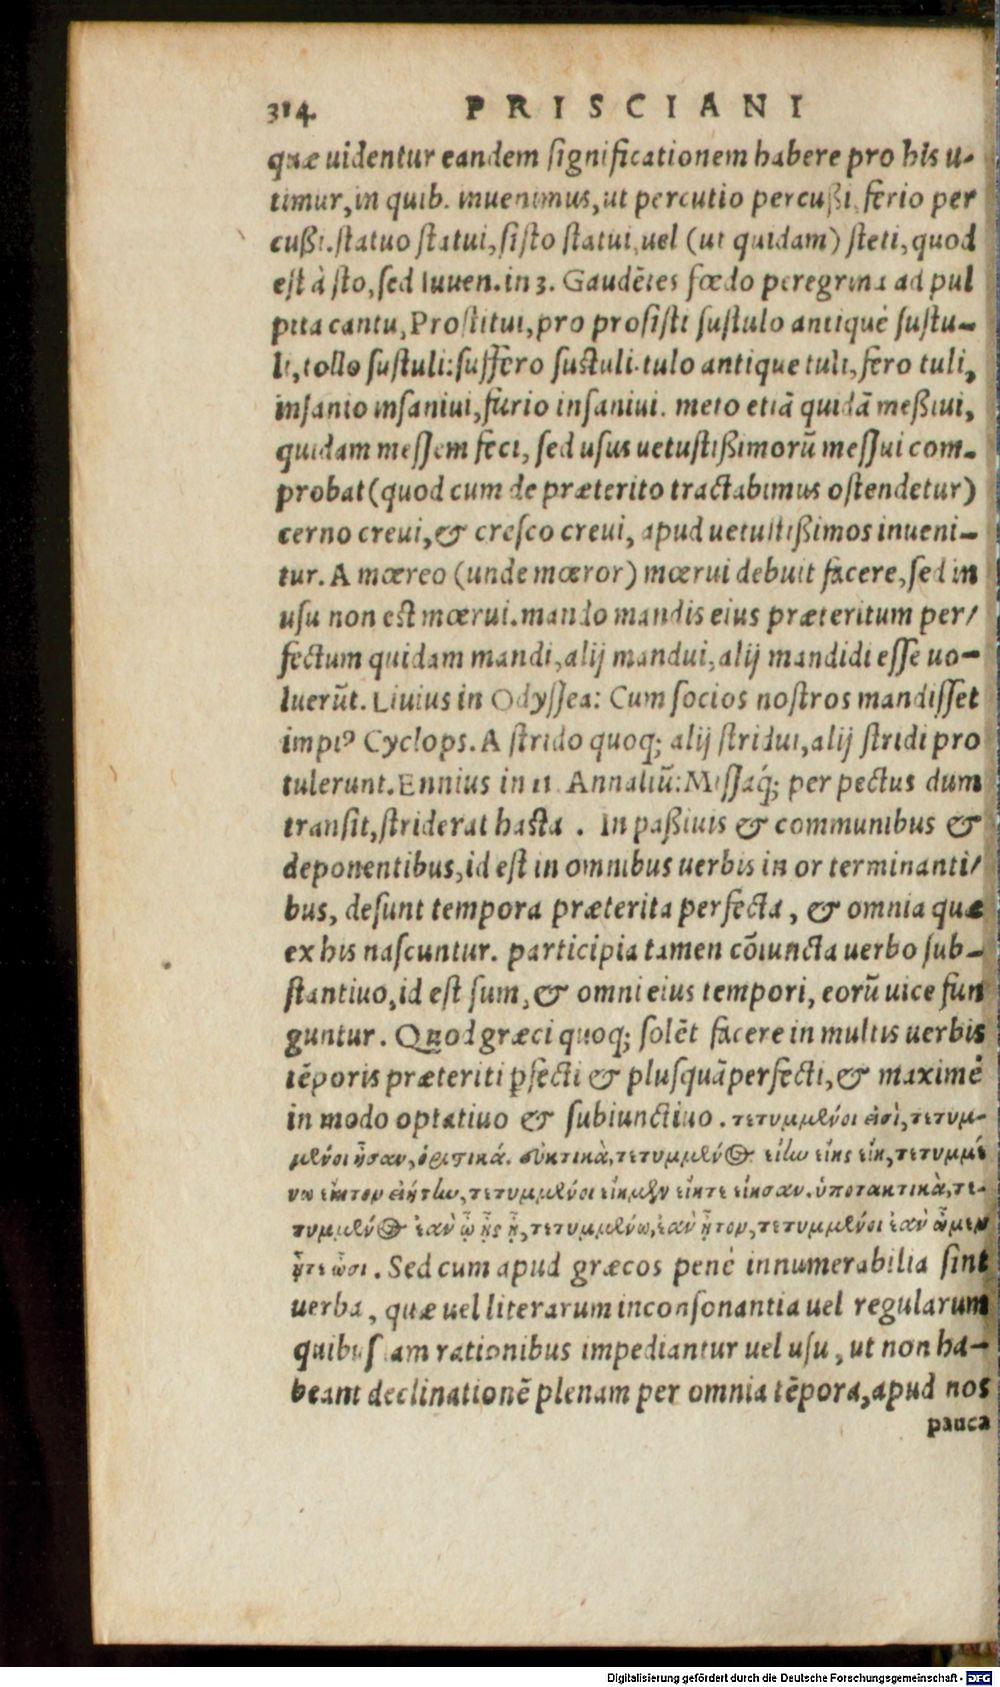 314 PRISCIANI
quæ uidentur eandem significationem habere pro his u-
timur, in quib. inuenimus, ut percutio percußi, ferio per
cußi. statuo statui, sisto statui, uel (ut quidam) steti, quod
est à sto, sed Iuuen. in 3. Gaudētes fœdo peregrina ad pul
pita cantu, Prostitui, pro prosisti sustulo antiquè sustu-
li, tollo sustuli: suffero sustuli. tulo antique tuli, fero tuli,
insanio insaniui, furio insaniui. meto etiā quidā meßiui,
quidam messem feci, sed usus uetustißimorū messui com-
probat (quod cum de præterito tractabimus ostendetur)
cerno creui, & cresco creui, apud uetustißimos inueni-
tur. A mœreo (unde mœror) mœrui debuit facere, sed in
usu non est mœrui. mando mandis eius præteritum per/
fectum quidam mandi, alij mandui, alij mandidi esse uo-
luerūt. Liuius in Odyssea: Cum socios nostros mandisset
impiꝰ Cyclops. A strido quoq; alij stridui, alij stridi pro
tulerunt. Ennius in 11 Annaliū: Missaq́; per pectus dum
transit, striderat hasta . In paßiuis & communibus &
deponentibus, id est in omnibus uerbis in or terminanti/
bus, desunt tempora præterita perfecta, & omnia quæ
ex his nascuntur. participia tamen cōiuncta uerbo sub-
stantiuo, id est sum, & omni eius tempori, eorū uice fun
guntur. Quod græci quoq; solēt facere in multis uerbis
tēporis præteriti ꝑfecti & plusquāperfecti, & maximè
in modo optatiuo & subiunctiuo. τετυμμένοι εἰσὶ, τετυμ-
μένοι ἦσαν, ὁριστικά. εὐκτικὰ, τετυμμένος εἴην εἴης εἴη, τετυμμέ
νω εἴητον εἰήτην, τετυμμένοι εἴημεν εἴητε εἴησαν. ὑποτακτικὰ, τε-
τυμμένος ἐὰν ὦ ᾖς ᾖ, τετυμμένω, ἐὰν ἦτον, τετυμμένοι ἐὰν ὦμεν
ἦτε ὦσι. Sed cum apud græcos penè innumerabilia sint
uerba, quæ uel literarum inconsonantia uel regularum
quibusdam rationibus impediantur uel usu, ut non ha-
beant declinationē plenam per omnia tēpora, apud nos
pauca
Digitalisierung gefördert durch die Deutsche Forschungsgemeinschaft - DFG